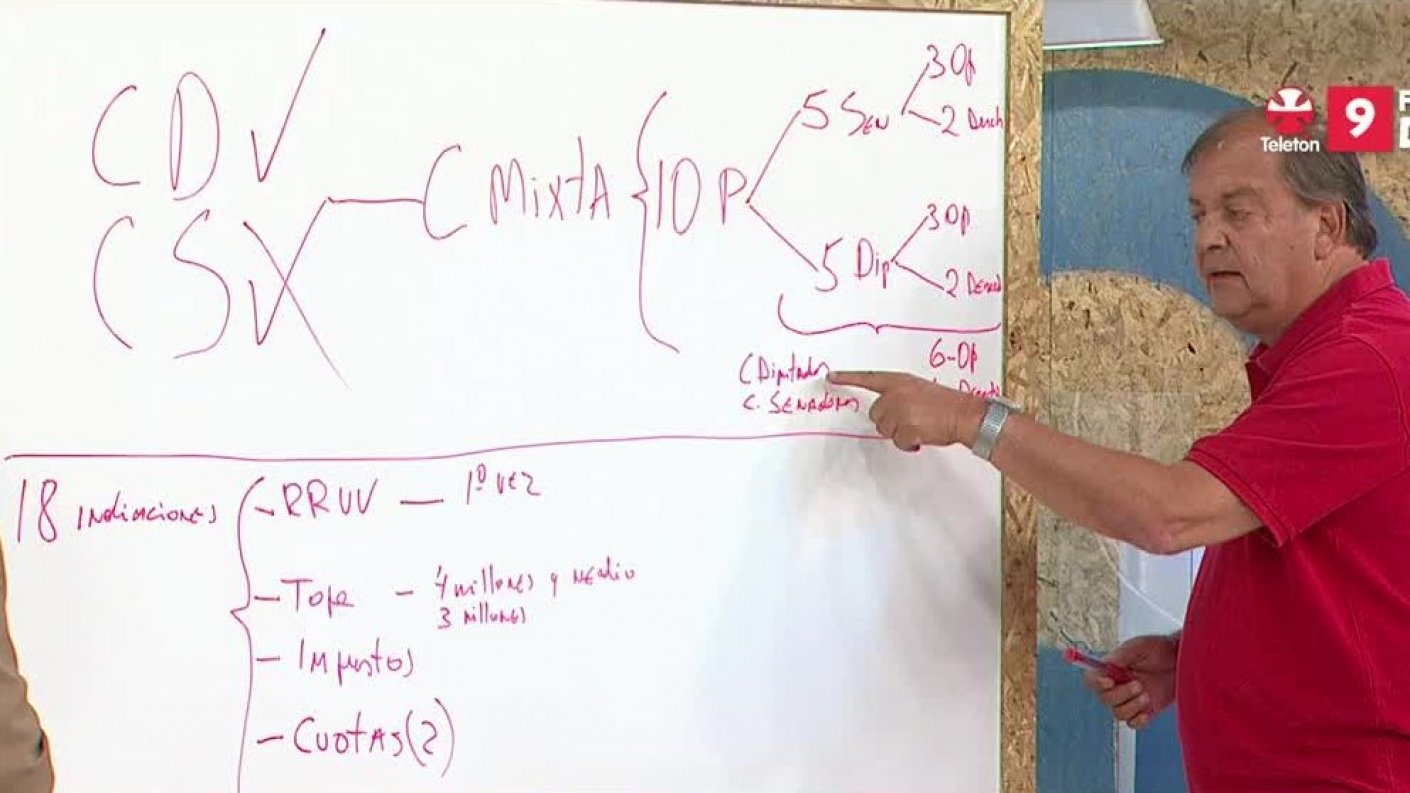 CD✓
CS✓
C MixtA
10 P
5 SEN
3 Op
2 Derech
5 Dip
3 Op
2 Derech
6-Op
C Diputados
C. SENADORES
18 INdicaciones
- RRUU - 1ª VEZ
- Tope - 4 millones y medio
3 millones
- IMpuestos
- CuotAs (2)
Teleton
9